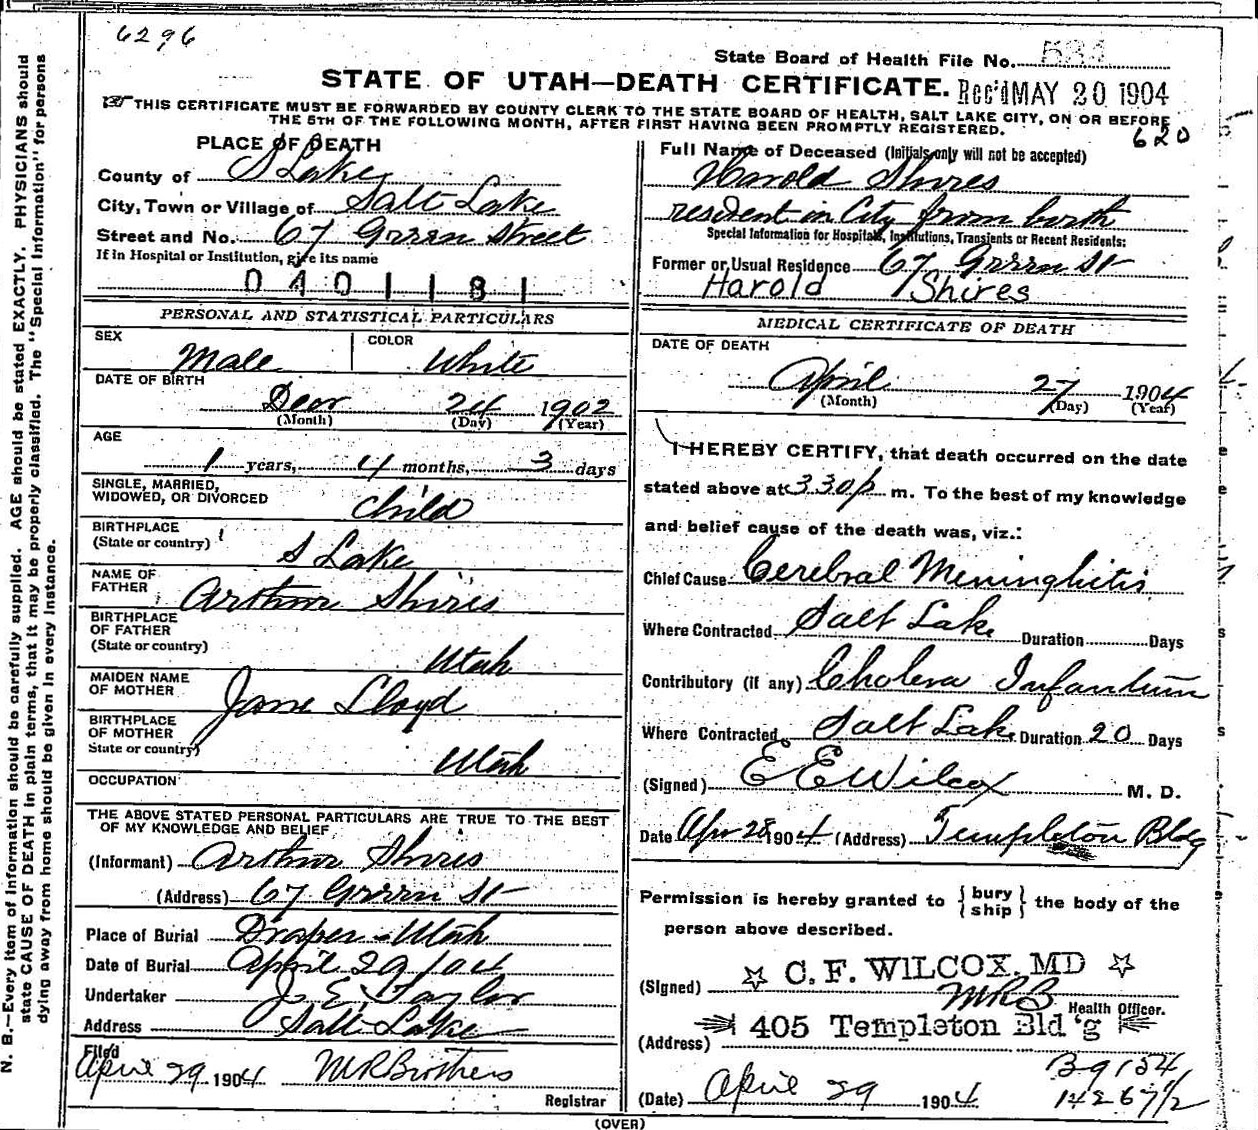 6296
State Board of Health File No. 531
STATE OF UTAH—DEATH CERTIFICATE. Rec'd MAY 20 1904
THIS CERTIFICATE MUST BE FORWARDED BY COUNTY CLERK TO THE STATE BOARD OF HEALTH, SALT LAKE CITY, ON OR BEFORE
THE 5TH OF THE FOLLOWING MONTH, AFTER FIRST HAVING BEEN PROMPTLY REGISTERED.
620
PLACE OF DEATH
County of S Lake
City, Town or Village of Salt Lake
Street and No. 67 Grren Street
If in Hospital or Institution, give its name
0401181
Full Name of Deceased (Initials only will not be accepted)
Harold Shires
resident in City from birth
Special Information for Hospitals, Institutions, Transients or Recent Residents:
Former or Usual Residence 67 Grren St
Harold Shires
PERSONAL AND STATISTICAL PARTICULARS
SEX Male
COLOR White
DATE OF BIRTH
Decr 24 1902
(Month) (Day) (Year)
AGE
1 years, 4 months, 3 days
SINGLE, MARRIED,
WIDOWED, OR DIVORCED Child
BIRTHPLACE
(State or country) S Lake
NAME OF
FATHER Arthur Shires
BIRTHPLACE
OF FATHER
(State or country) Utah
MAIDEN NAME
OF MOTHER Jane Lloyd
BIRTHPLACE
OF MOTHER
State or country) Utah
OCCUPATION
THE ABOVE STATED PERSONAL PARTICULARS ARE TRUE TO THE BEST
OF MY KNOWLEDGE AND BELIEF
(Informant) Arthur Shires
(Address) 67 Grren St
Place of Burial Draper - Utah
Date of Burial April 29 1904
Undertaker J. E. Taylor
Address Salt Lake
Filed
April 29 1904 MRBrothers
Registrar
MEDICAL CERTIFICATE OF DEATH
DATE OF DEATH
April 27 1904
(Month) (Day) (Year)
I HEREBY CERTIFY, that death occurred on the date
stated above at 330p m. To the best of my knowledge
and belief cause of the death was, viz.:
Chief Cause Cerebral Meninghitis
Where Contracted Salt Lake Duration Days
Contributory (if any) Cholera Infantum
Where Contracted Salt Lake Duration 20 Days
(Signed) E E Wilcox M. D.
Date Apr 28 1904 (Address) Templeton Bldg
Permission is hereby granted to { bury ship } the body of the
person above described.
(Signed) C. F. WILCOX, MD
MRB Health Officer.
(Address) 405 Templeton Bld'g
B9154
(Date) April 29 1904
14267 1/2
(OVER)
N. B.—Every item of information should be carefully supplied. AGE should be stated EXACTLY. PHYSICIANS should
state CAUSE OF DEATH in plain terms, that it may be properly classified. The "Special Information" for persons
dying away from home should be given in every instance.